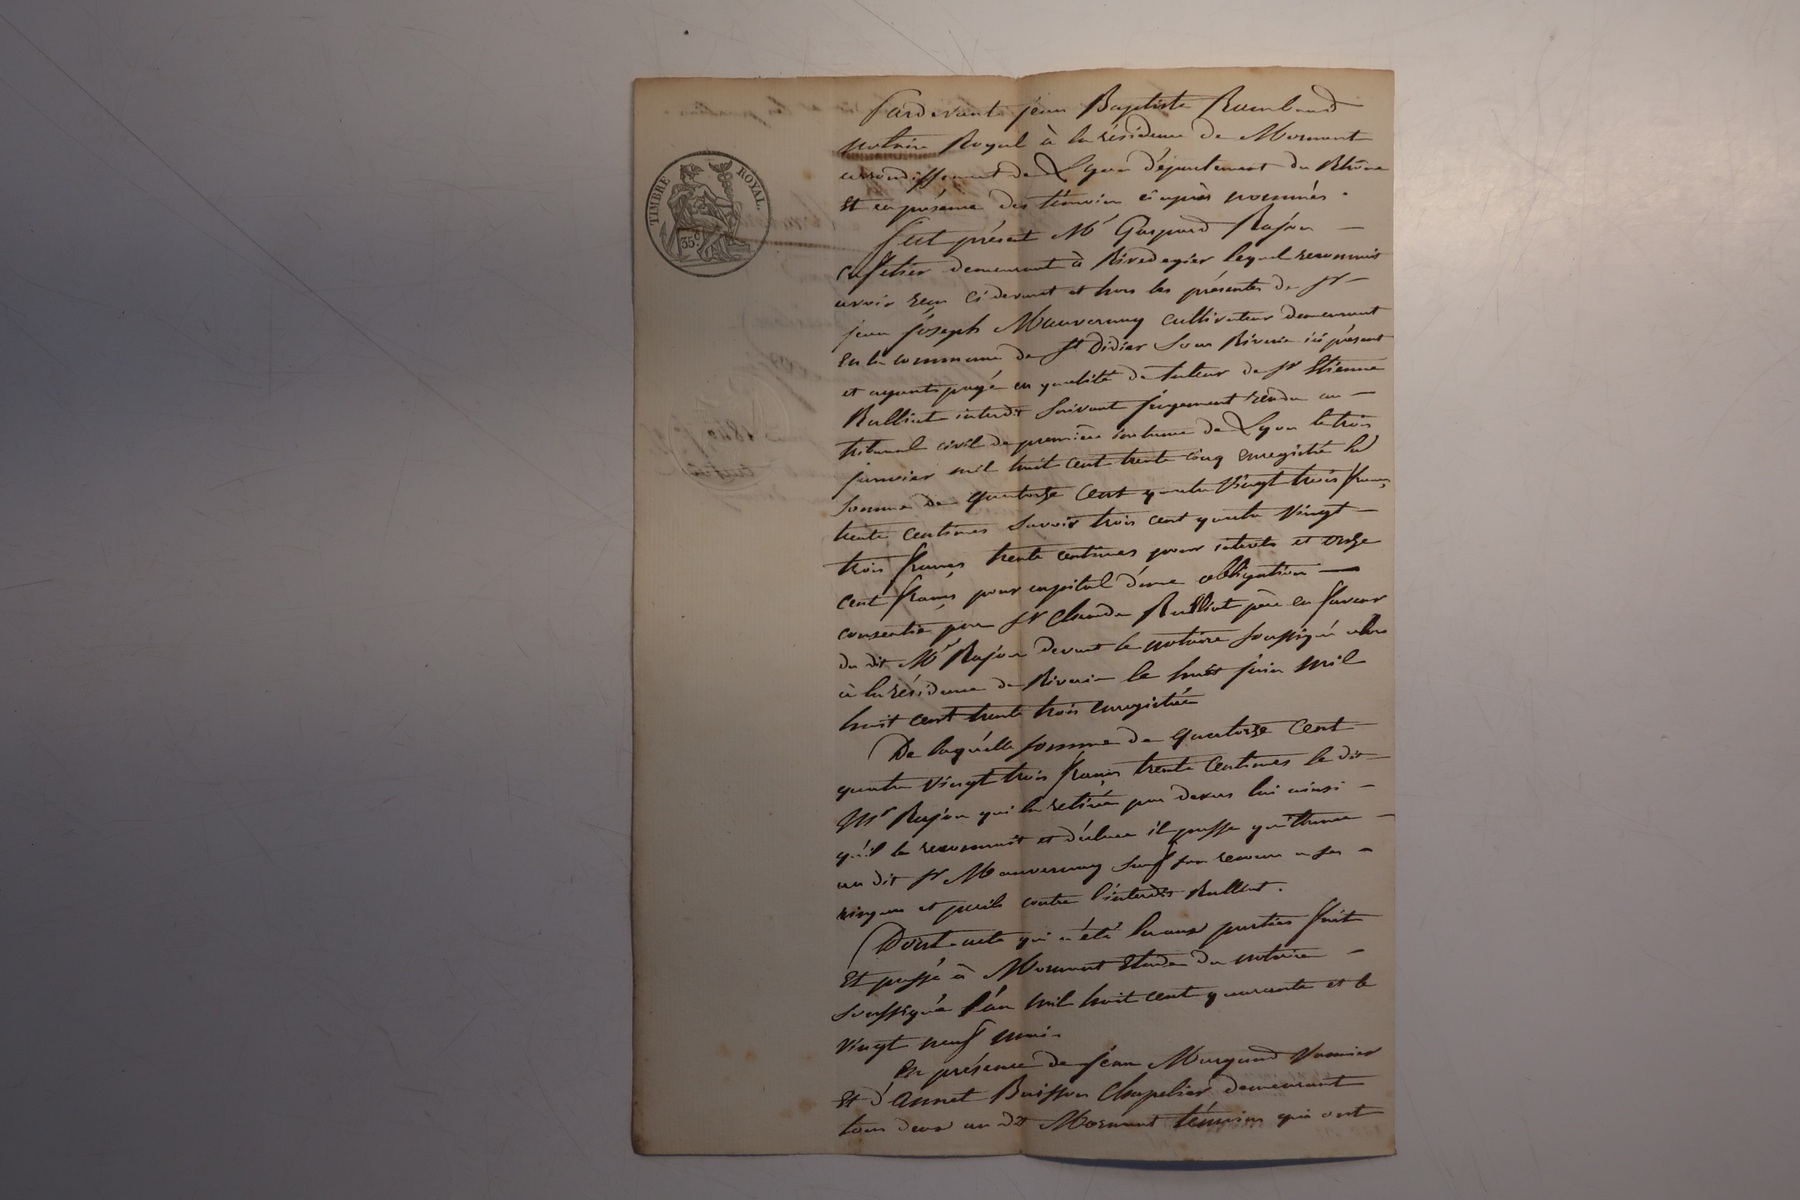 Pardevant jean Baptiste Rambaud
notaire Royal à la résidence de Mornant
arrondissement de Lyon département du Rhône
Et en présence des témoins ci après nommés.
TIMBRE ROYAL.
35 c.
fut présent Mr Gaspard Rajon
cafetier demeurant à Rivedegier lequel reconnait
avoir reçu ci devant et hors les présentes de sr
jean joseph Mauvernay cultivateur demeurant
En la commune de St Didier Sous Riverie ici présent
et ayant payé en qualité de tuteur de sr Etienne
Rullliat interdit Suivant jugement rendu au
tribunal civil de première instance de Lyon le trois
janvier mil huit cent trente cinq enregistré la
Somme de quatorze Cent quatre Vingt trois francs
trente centimes Savoir trois cent quatre Vingt
trois francs trente centimes pour intérêts et onze
cent francs pour capital d'une obligation
consentie par sr Claude Rulliat père en faveur
du dit Mr Rajon devant le notaire Soussigné alors
à la résidence de Riverie le huit juin mil
huit cent trente trois enregistrée
De laquelle somme de quatorze Cent
quatre Vingt trois francs trente Centimes le dit
Mr Rajon qui l'a retirée par devers lui ainsi
qu'il le reconnait et déclare il passe quittance
au dit sr Mauvernay Sauf son recours a ses
risques et périls contre l'interdit Rulliat.
Dont acte qui a été lu aux parties fait
Et passé à Mornant Etude du notaire
Soussigné l'an mil huit cent quarante et le
Vingt neuf mai.
En présence de jean Margand
Et d'Annet Buisson Chapelier demeurant
tous deux au dit Mornant témoins qui ont